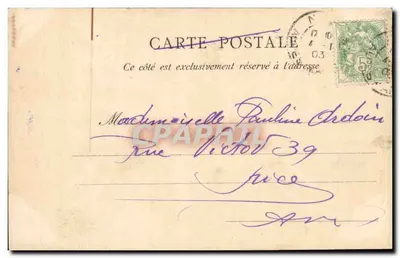 CARTE POSTALE
Ce côté est exclusivement réservé à l'adresse
Mademoiselle Pauline Ardoin
rue Victor 39
Nice
A M
CPAPHIL
03
5